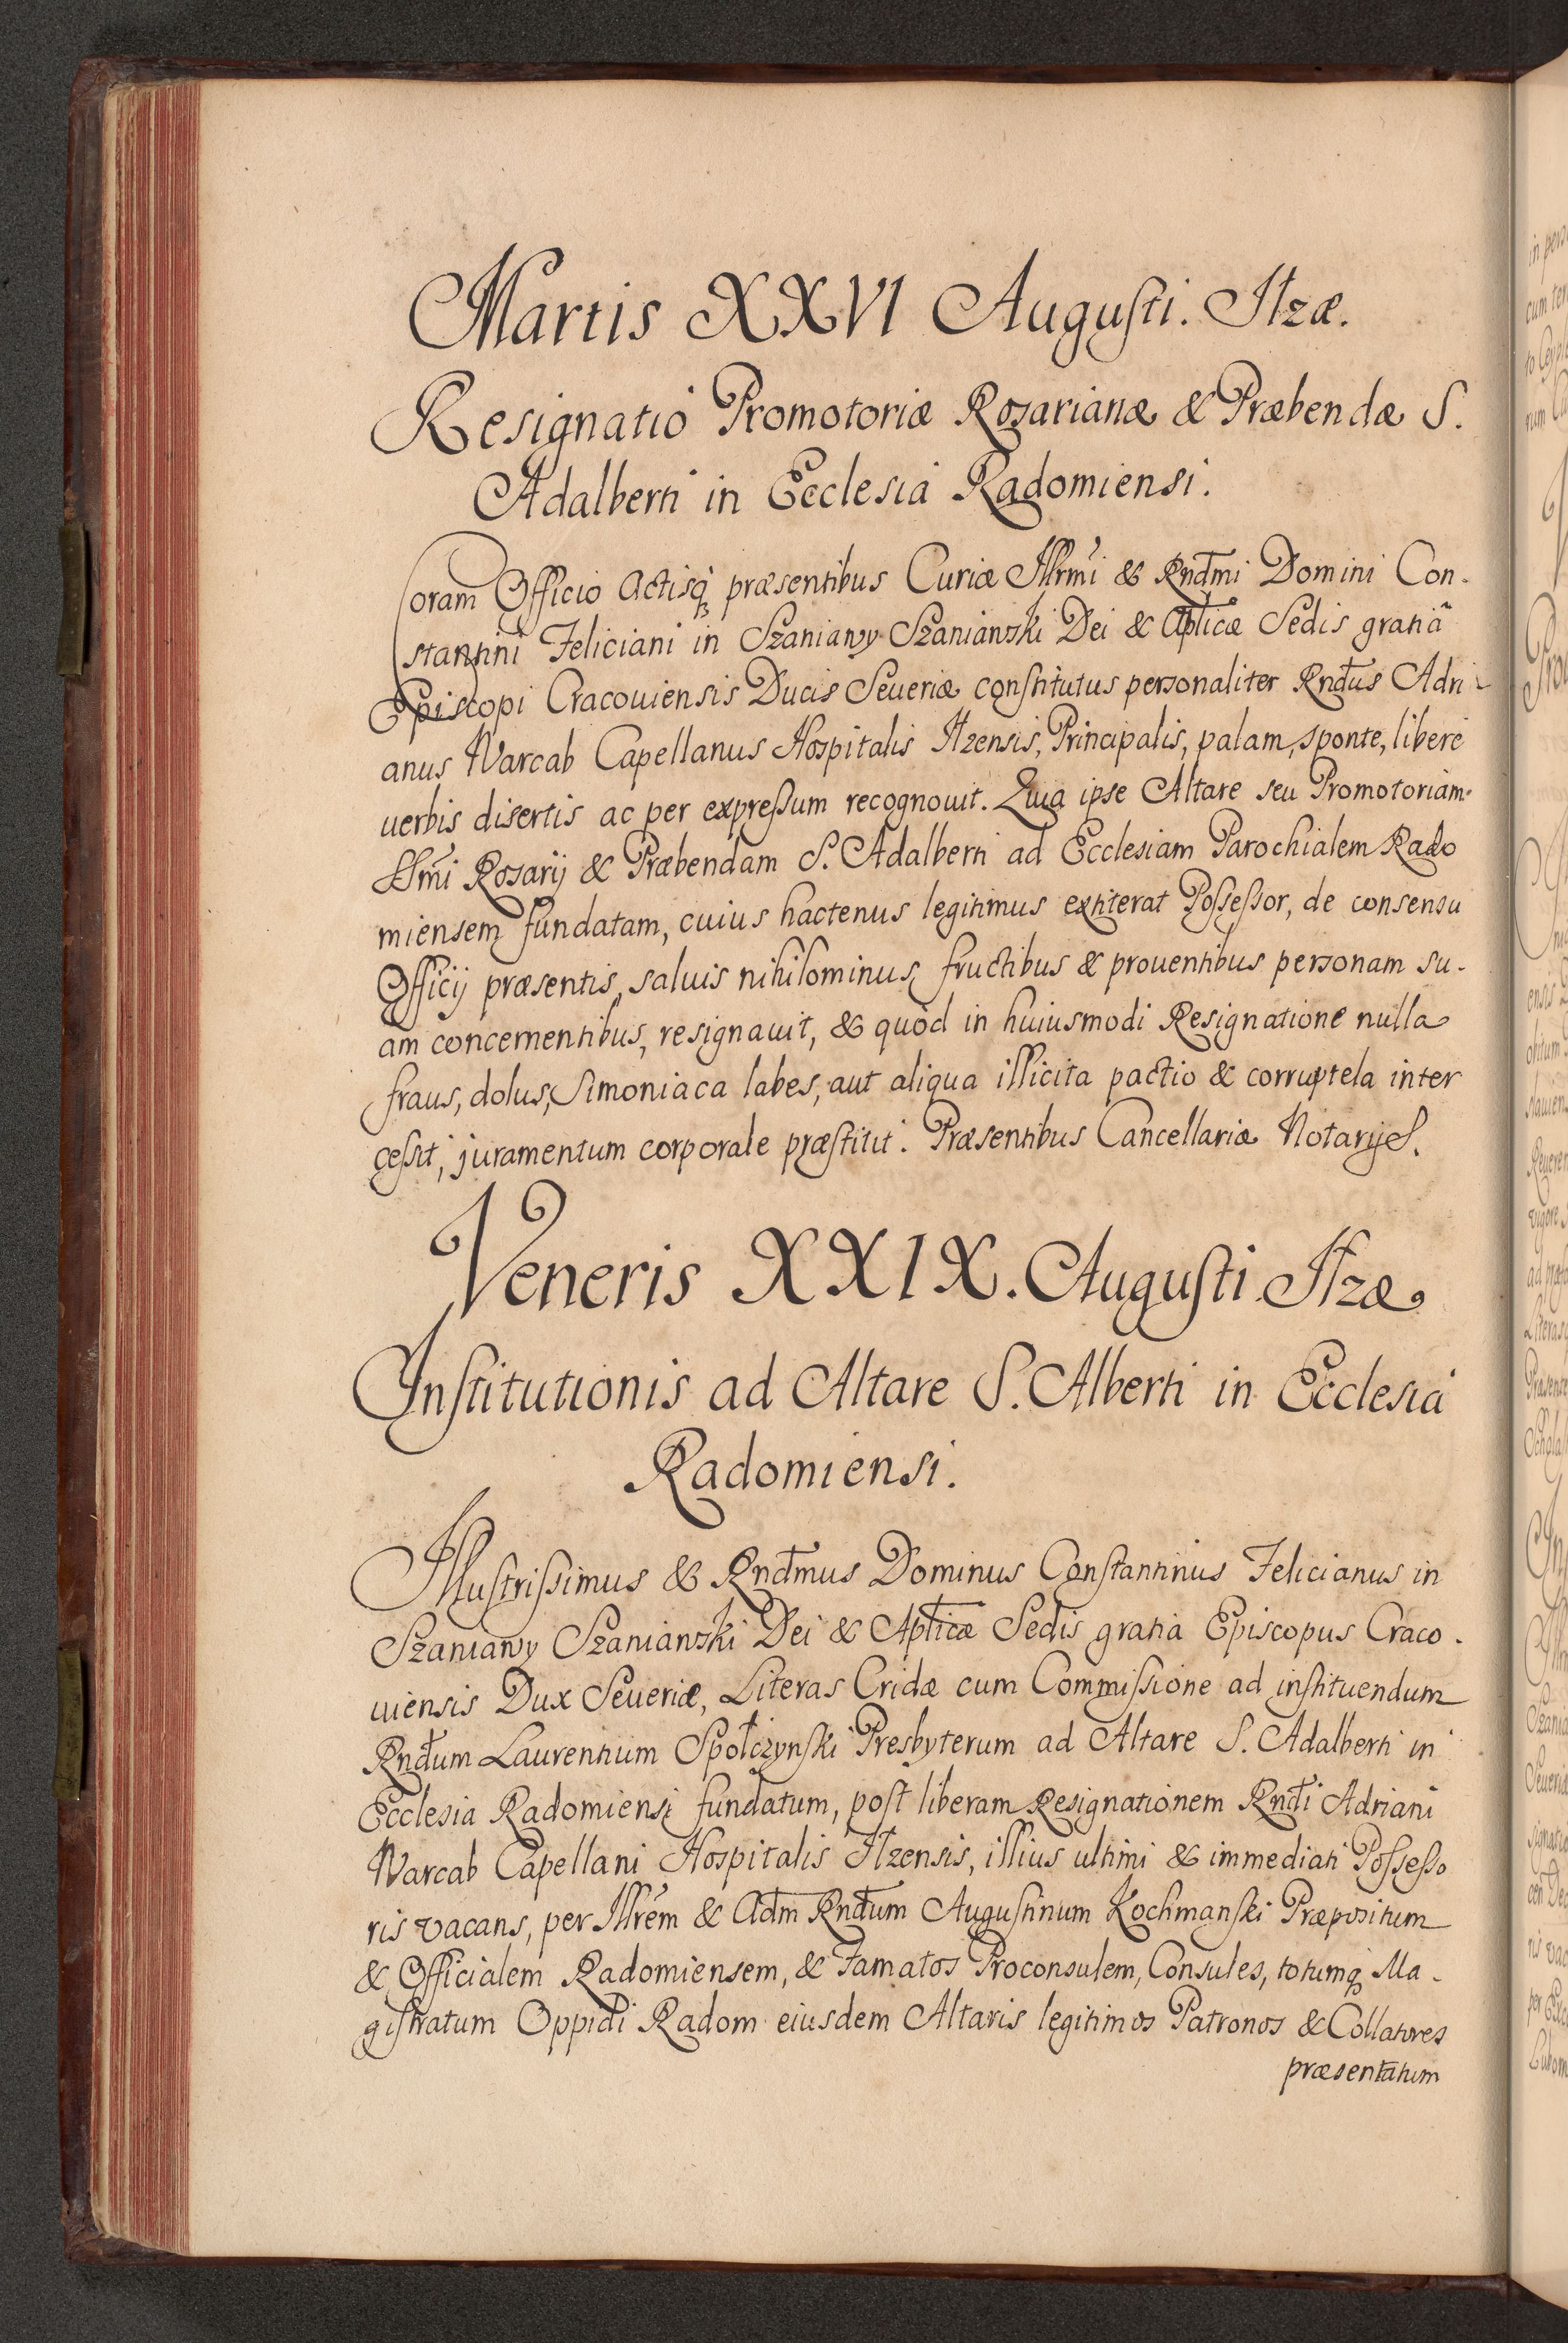 Martis XXVI Augusti. Ilzæ.
Resignatio Promotoriæ Rosarianæ & Præbendæ S.
Adalberti in Ecclesiâ Radomiensi.
Coram Officio Actisq́ꝫ præsentibus Curiæ Illrm̃i & Rnd̃mi Domini Con-
stantini Feliciani in Szaniawy Szaniawski Dei & Apl̃icæ Sedis gratiâ
Episcopi Cracouiensis Ducis Seueriæ constitutus personaliter Rnd̃us Adri-
anus Warcab Capellanus Hospitalis Ilzensis, Principalis, palam, sponte, liberè
uerbis disertis ac per expressum recognouit. Quia ipse Altare seu Promotoriam
SSm̃i Rosarij & Præbendam S. Adalberti ad Ecclesiam Parochialem Rado
miensem fundatam, cuius hactenus legitimus extiterat Possessor, de consensu
Officij præsentis, saluis nihilominus fructibus & prouentibus personam su-
am concernentibus, resignauit, & quòd in huiusmodi Resignatione nulla
fraus, dolus, simoniaca labes, aut aliqua illicita pactio & corruptela inter
cessit, juramentum corporale præstitit. Præsentibus Cancellariæ Notarijs.
Veneris XXIX. Augusti Ilzæ
Institutionis ad Altare S. Alberti in Ecclesiâ
Radomiensi.
Illustrissimus & Rnd̃mus Dominus Constantinus Felicianus in
Szaniawy Szaniawski Dei & Apl̃icæ Sedis gratia Episcopus Craco-
uiensis Dux Seueriæ, Literas Cridæ cum Commissione ad instituendum
Rnd̃um Laurentium Społczynski Presbyterum ad Altare S. Adalberti in
Ecclesia Radomiensi fundatum, post liberam Resignationem Rnd̃i Adriani
Warcab Capellani Hospitalis Ilzensis, illius ultimi & immediati Possesso
ris vacans, per Illrẽm & Ad̃m Rnd̃um Augustinum Kochmanski Præpositum
& Officialem Radomiensem, & Famatos Proconsulem, Consules, totumqꝫ Ma-
gistratum Oppidi Radom eiusdem Altaris legitimos Patronos & Collatores
præsentatum